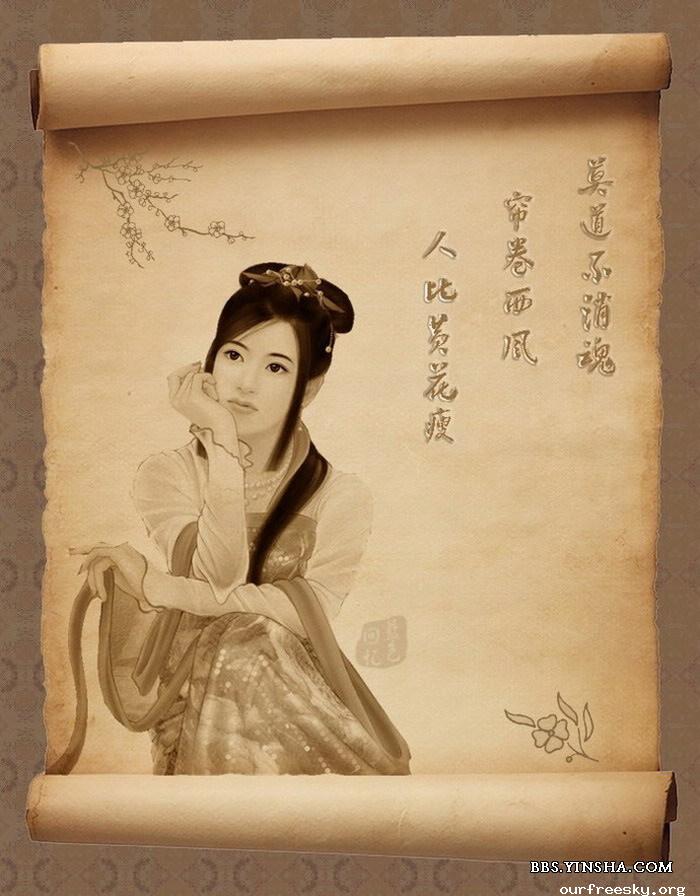 莫道不消魂
帘卷西风
人比黄花瘦
蓝色
回忆
BBS.YINSHA.COM
ourfreesky.org